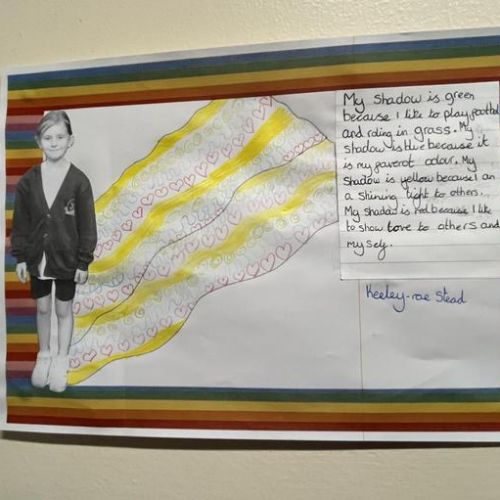 My Shadow is green
because I like to play football
and roling in grass. My
shadow is blue because it
is my faverot colour. My
Shadow is yellow because I am
a shining light to others.
My shadow is red because I like
to show love to others and
my self.
Keeley-rae Stead